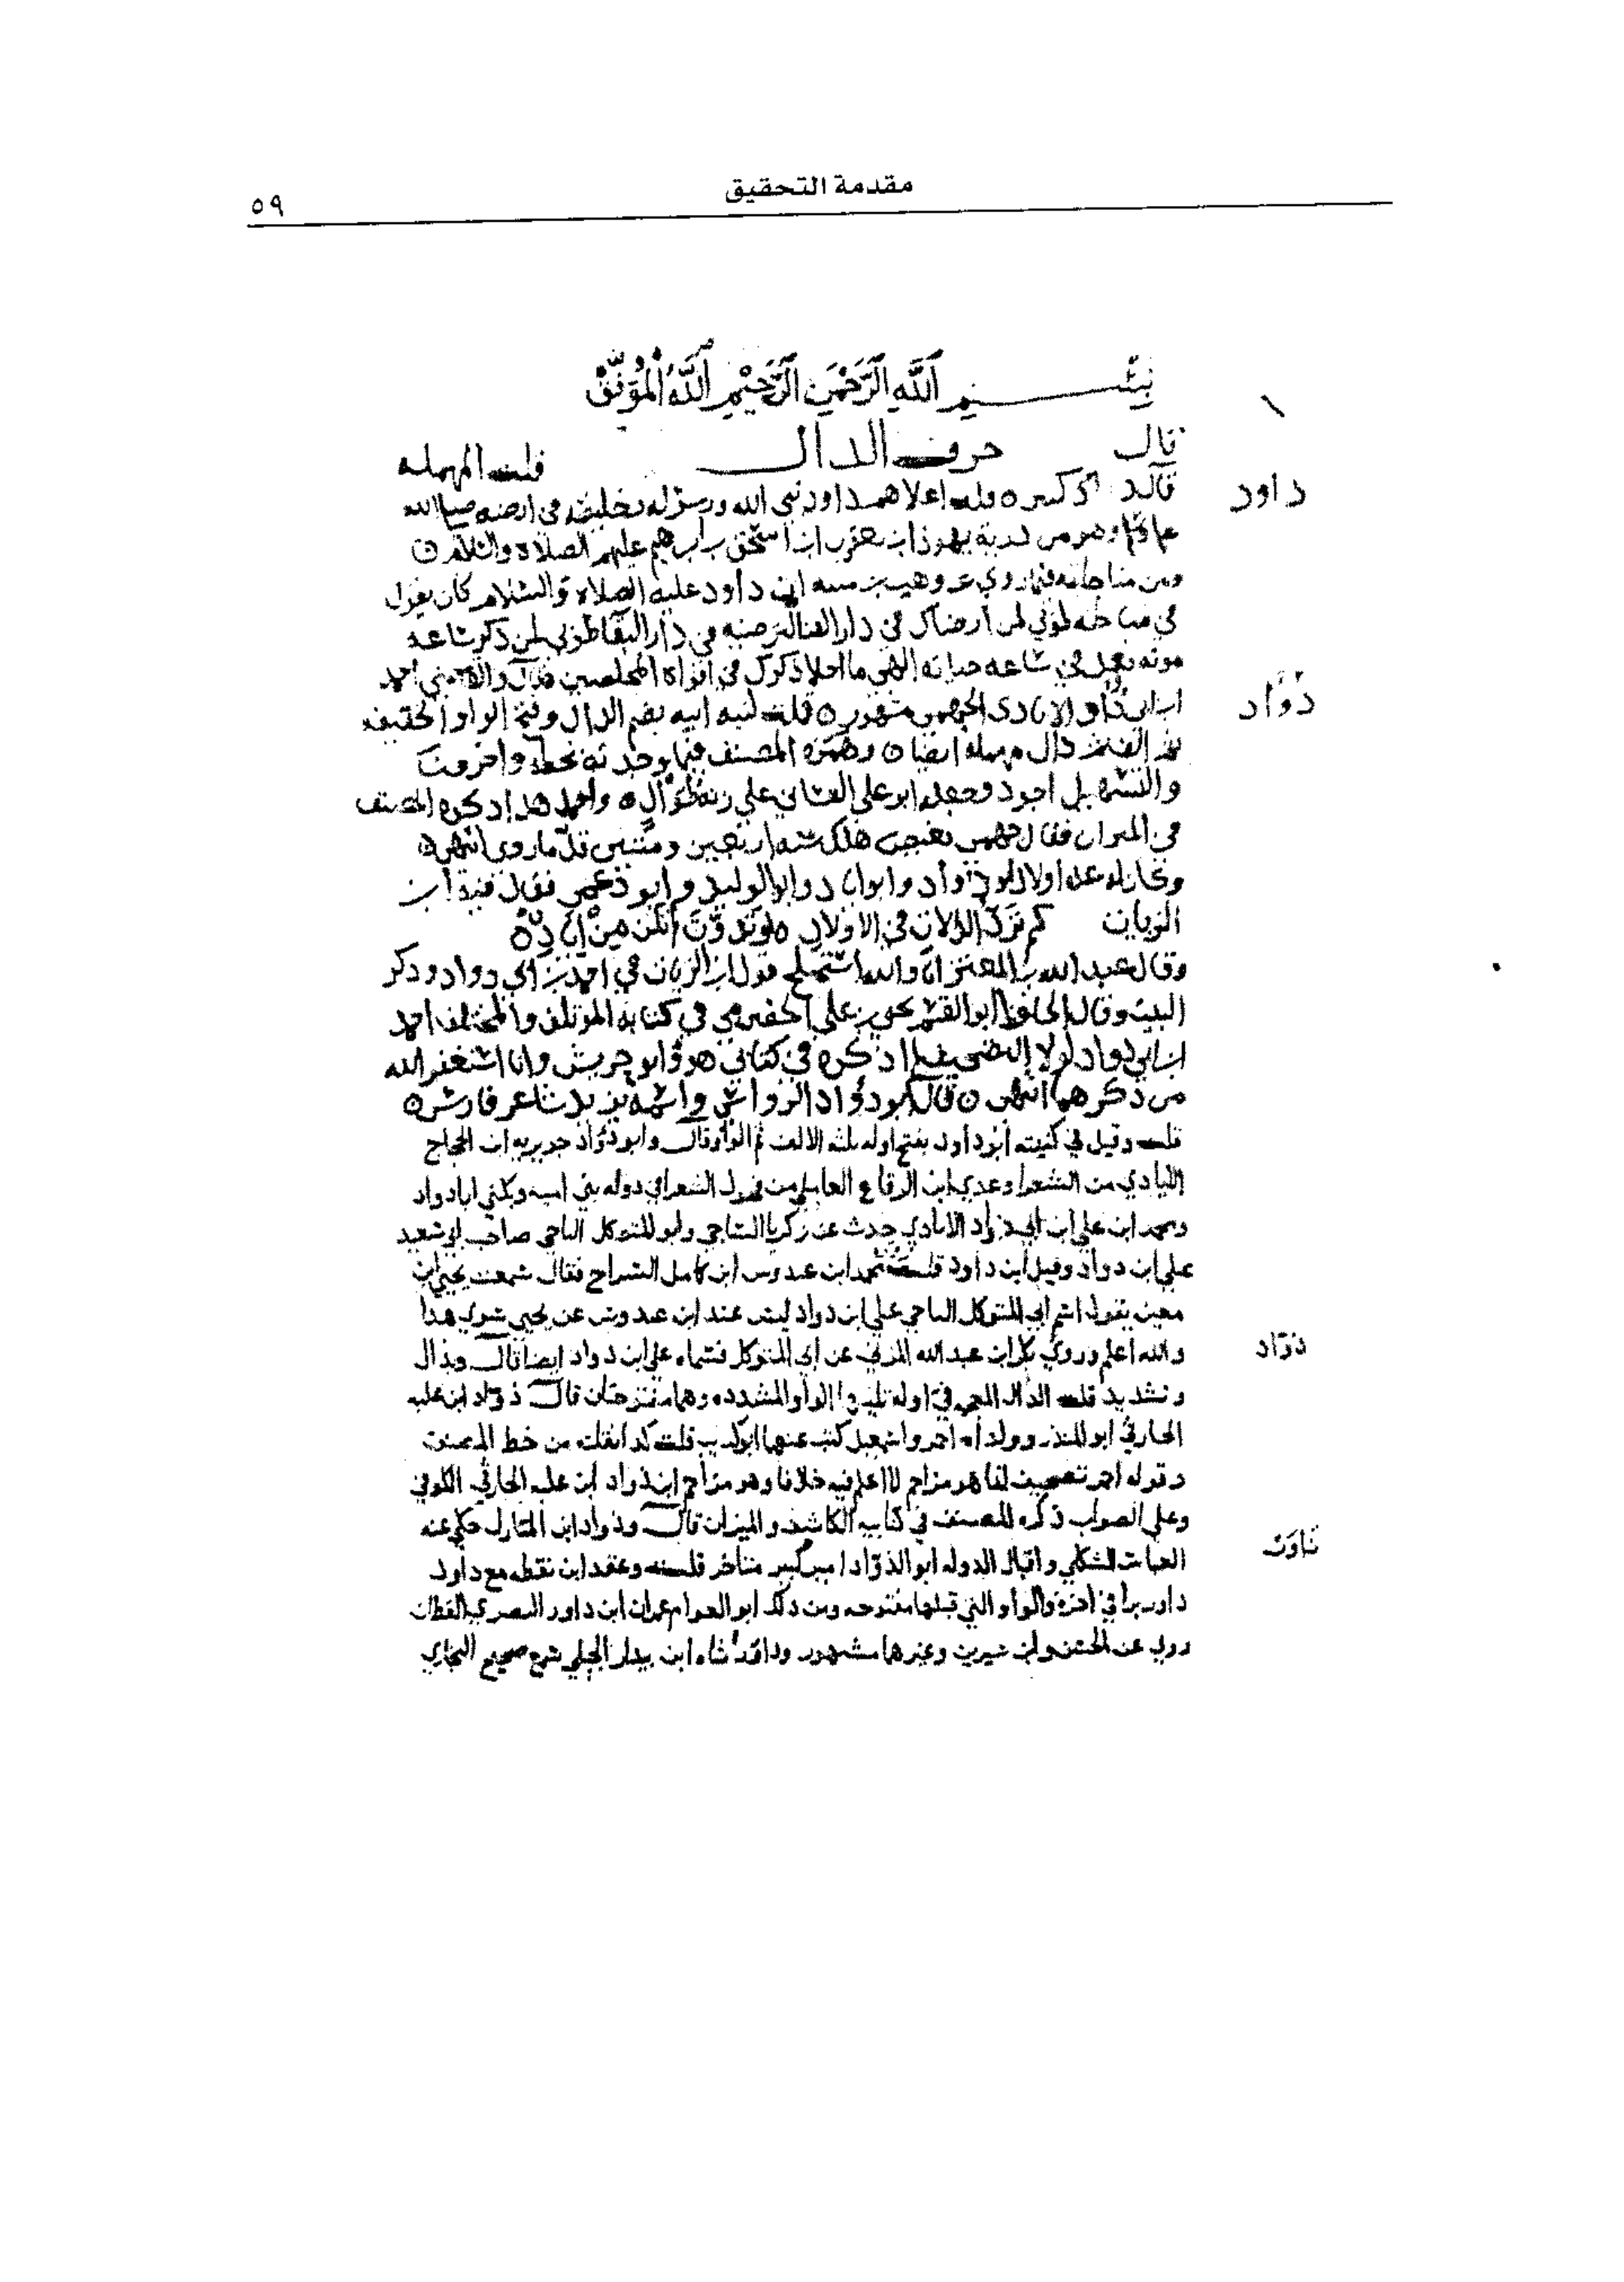 مقدمة التحقيق
٥٩
بسم الله الرحمن الرحيم الله الموفق
قال حرف الدال قلت المهملة
داود
قال د كثير ه قلت اعلاهم داود نبي الله ورسوله وخليفته في ارضه صلى الله
عليه وسلم وهو من ذرية يهوذا بن يعقوب ابن اسحق بن ابرهيم عليهم الصلاة والسلام ن
ومن مناجاته فيما روي عن وهب بن منبه ان داود عليه الصلاة والسلام كان يقول
في مناجاته طوبى لمن ارضاك في دار الفنا لترضيه في دار البقا طوبى لمن ذكر ساعة
موته فعمل في ساعة حياته الهي ما احلا ذكرك في افواه المخلصين قال والقاضي احمد
دؤاد
ابن ابي دؤاد الايادي الجهمي مشهور ه قلت كنية ابيه بضم الدال وفتح الواو الخفيفة
ثم الف ثم دال مهملة ايضا ن وهمزه المصنف فيما وجدته بخطه واخرون
والتسهيل اجود وجعله ابو علي الغساني على زنة طوال ه واحمد هذا ذكره المصنف
في الميزان فقال جهمي بغيض هلك سنه اربعين ومئتين قل ما روى انتهى ه
وكان له عدة اولاد ابو دؤاد وابو اياد وابو الوليد وابو دعمي فقال فيه ابن
الزيات
وقال عبد الله بن المعتز انا والله استملح قول ابن الزيات في احمد بن ابي دواد وذكر
البيت وقال الحافظ ابو القسم يحيى بن علي الحضرمي في كتابه المؤتلف والمختلف احمد
ابن ابي دواد لولا التصحيف لم اذكره في كتابي هو وابو حريش وانا استغفر الله
من ذكرهما انتهى ن قال وابو دؤاد الرواسي واسمه يزيد شاعر فارس ه
قلت وقيل في كنيته ابو داود بفتح اوله يليه الالف ثم الواو قال وابو دؤاد جويرية ابن الحجاج
الايادي من الشعرا وعدي ابن الرقاع العاملي من فحول الشعرا في دولة بني امية ويكنى ابا دواد
ومحمد ابن علي ابن ابي دؤاد الايادي حدث عن زكريا الساجي وابو المتوكل الناجي صاحب ابو سعيد
علي ابن دواد وقيل ابن داود قلت محمد ابن عبدوس ابن كامل السراج فقال سمعت يحيى ابن
معين يقول اسم ابي المتوكل الناجي علي ابن دواد ليس عند ابن عبدوس عن يحيى سوى هذا
ذوّاد
والله اعلم وروى بكر ابن عبد الله المزني عن ابي المتوكل فسماه علي ابن دواد ايضا قال وبذال
وتشديد قلت الذال المعجمة في اوله تليها الواو المشددة وهما مفتوحتان قال ذوّاد ابن علبة
الحارثي ابو المنذر وولداه احمر واسمعيل كتب عنهما ابو كريب قلت كذا نقلت من خط المصنف
وقوله احمر تصحيف انما هو مزاحم لا اعلم فيه خلافا وهو مزاحم ابن ذواد ابن علبة الحارثي الكوفي
وعلى الصواب ذكره المصنف في كتابيه الكاشف والميزان قال وذواد ابن المبارك حكى عنه
داور
العباس الشكلي واقبال الدولة ابو الذوّاد امير كبير متاخر قلت وعقد ابن نقطة مع داود
داور برا في اخره والواو التي قبلها مفتوحة ومن ذلك ابو العوام عمران ابن داور البصري القطان
روى عن الحسن وابن سيرين وغيرهما مشهور شاه ابن بيدار الجيلي سمع صحيح البخاري